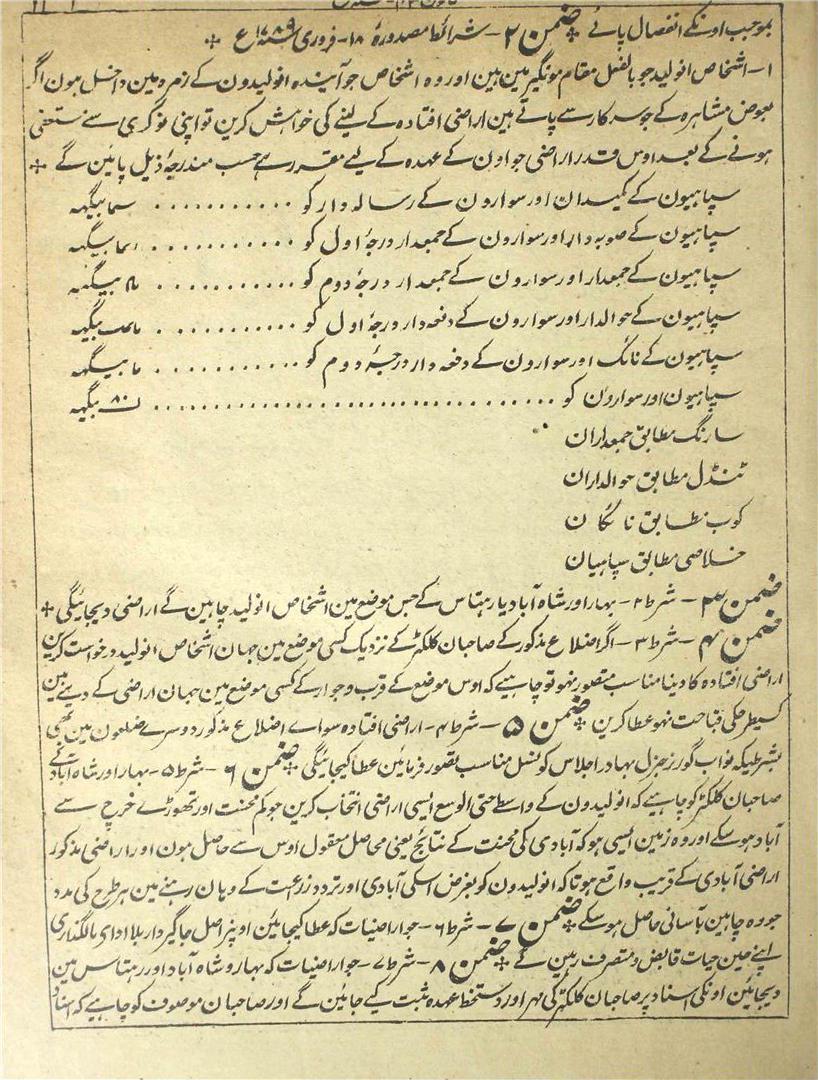 بموجب اونکے انفصال پائے ضمن ۲ - شرائط مصدورۂ ۱۸ - فروری سنہ ۱۷۸۹ع
۱ - اشخاص انولید جو بالفعل مقام مونگیر مین ہین اور وہ اشخاص جو آیندہ انولیدون کے زمرہ مین داخل ہون اگر
بعوض مشاہرہ کے جو سرکار سے پاتے ہین اراضی افتادہ کے لینے کی خواہش کرین تو اپنی نوکری سے مستعفی
ہونے کے بعد اوس قدر اراضی جو اون کے عہدہ کے لیے مقرر ہے حسب مندرجۂ ذیل پائین گے
سپاہیون کے کمیدان اور سوارون کے رسالہ دار کو ............ بیگہہ
سپاہیون کے صوبہ دار اور سوارون کے جمعدار درجۂ اول کو ............ بیگہہ
سپاہیون کے جمعدار اور سوارون کے جمعدار درجۂ دوم کو ............ بیگہہ
سپاہیون کے حوالدار اور سوارون کے دفعہ دار درجۂ اول کو ............ بیگہہ
سپاہیون کے نائک اور سوارون کے دفعہ دار درجۂ دوم کو ............ بیگہہ
سپاہیون اور سوارون کو .............................. ۸۰ بیگہہ
سارنگ مطابق جمعداران
ٹنڈل مطابق حوالداران
کوب مطابق نائکان
خلاصی مطابق سپاہیان
ضمن ۳ - شرط ۲ - بہار اور شاہ آباد یا رہتاس کے جس موضع مین اشخاص انولید چاہین گے اراضی دیجائیگی
ضمن ۴ - شرط ۳ - اگر اضلاع مذکور کے صاحبان کلکٹر کے نزدیک کسی موضع مین جہان اشخاص انولید درخواست کرین
اراضی افتادہ کا دینا مناسب متصور نہو تو چاہیے کہ اوس موضع کے قرب و جوار کے کسی موضع مین جہان اراضی کے دینے مین
کسیطرحکی قباحت نہو عطا کرین ضمن ۵ - شرط ۴ - اراضی افتادہ سواے اضلاع مذکور دوسرے ضلعون مین بھی
بشرطیکہ نواب گورنر جنرل بہادر اجلاس کونسل مناسب تصور فرمائین عطا کیجائیگی ضمن ۶ - شرط ۵ - بہار اور شاہ آباد کے
صاحبان کلکٹر کو چاہیے کہ انولیدون کے واسطے حتی الوسع ایسی اراضی انتخاب کرین جو کم محنت اور تھوڑے خرچ سے
آباد ہو سکے اور وہ زمین ایسی ہو کہ آبادی کی محنت کے نتائج یعنی محاصل معقول اوس سے حاصل ہون اور اراضی مذکور
اراضی آبادی کے قریب واقع ہو تاکہ انولیدون کو بغرض اسکی آبادی اور تردد زراعت کے وہان رہنے مین ہر طرح کی مدد
جو وہ چاہین بآسانی حاصل ہو سکے ضمن ۷ - شرط ۶ - جو اراضیات کہ عطا کیجائین اونپر اصل جاگیردار بلا اداے مالگذاری
اپنے حین حیات قابض و متصرف رہین گے ضمن ۸ - شرط ۷ - جو اراضیات کہ بہار و شاہ آباد اور رہتاس مین
دیجائین اونکی اسناد پر صاحبان کلکٹر کی مہر اور دستخط عہدہ ثبت کیے جائین گے اور صاحبان موصوف کو چاہیے کہ اسناد